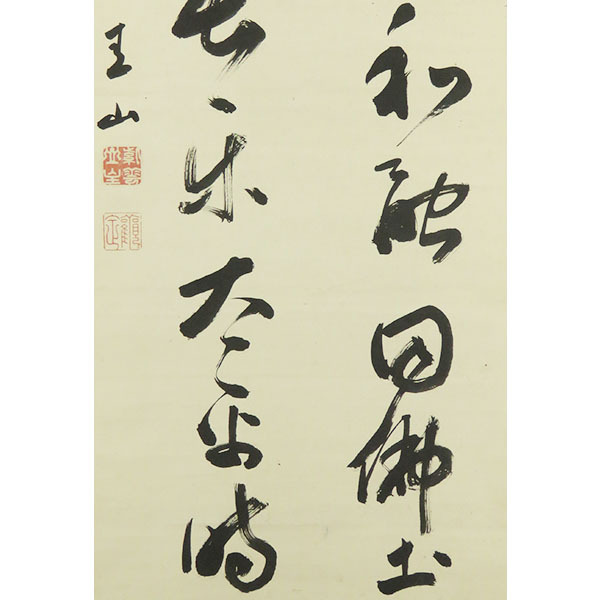 和融同佛土
長樂太平時
玉山